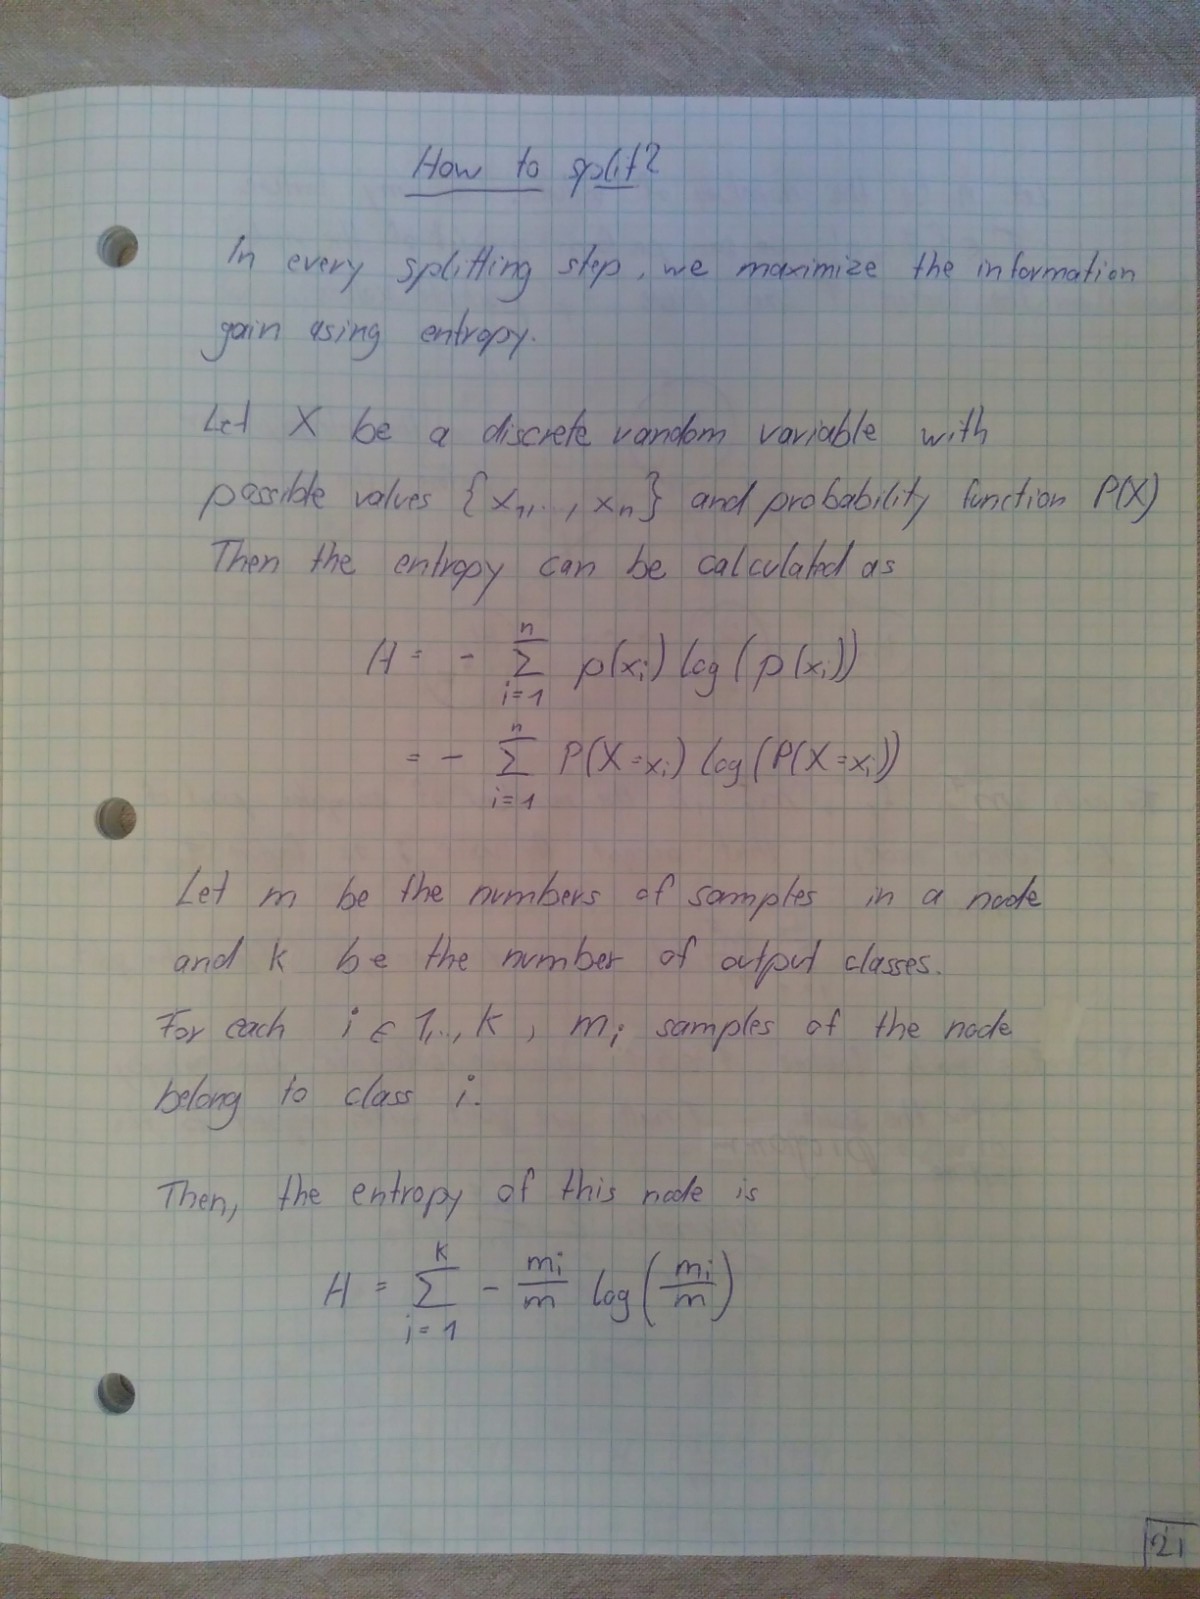 How to split?
In every splitting step, we maximize the information
gain using entropy.
Let X be a discrete random variable with
possible values {x₁,..., xₙ} and probability function P(X)
Then the entropy can be calculated as
H = - ∑ᵢ₌₁ⁿ p(xᵢ) log(p(xᵢ))
= - ∑ᵢ₌₁ⁿ P(X=xᵢ) log(P(X=xᵢ))
Let m be the numbers of samples in a node
and k be the number of output classes.
For each i ∈ 1,..,k, mᵢ samples of the node
belong to class i.
Then, the entropy of this node is
H = ∑ᵢ₌₁ᵏ - mᵢ/m log(mᵢ/m)
21